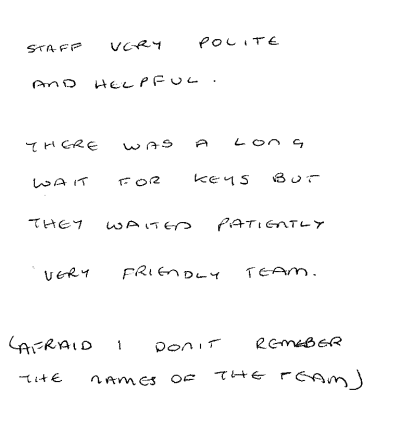 STAFF VERY POLITE
AND HELPFUL.
THERE WAS A LONG
WAIT FOR KEYS BUT
THEY WAITED PATIENTLY
VERY FRIENDLY TEAM.
(AFRAID I DON'T REMEMBER
THE NAMES OF THE TEAM)